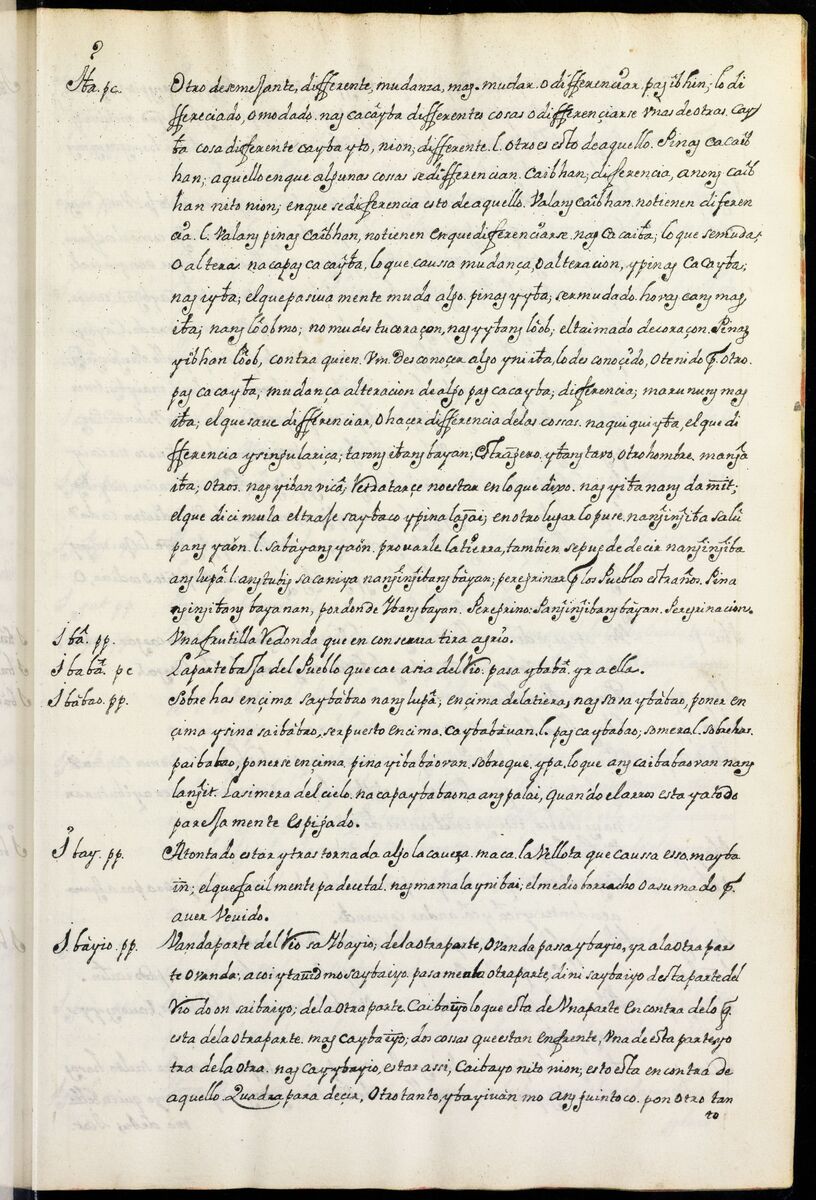 Iba. pc. Otro desemejante, differente, mudanza, mag. mudar. o differenciar. pag ibhin; lo di
ffereciado, o modado. nag cacayba differentes cosas o differençiarse vnas de otras. Cay
ba cosa differente cayba yto, nion; differente. l. otro es esto de aquello. Pinag cacaib
han; aquello en que algunas cossas se differencian. Caibhan; diferencia, anong caib
han nito nion; en que se diferencia esto de aquello. Valang caibhan. no tienen diferen
cia. l. Valang pinag caibhan, no tienen en que differenciarse. nag cacaiba; lo que se muda,
o altera. nacapag cacayba, lo que caussa mudança, o alteracion, y pinag cacayba;
nag iyba; el que pasiva mente muda algo. pinag yyba; ser mudado. houag cang mag
iba; nang loobmo; no mudes tu coraçon, nag yybang loob; el taimado de coraçon. Pinag
yibhan loob, contra quien. Vm. Desconoçer algo yniiba, lo desconoçido, o tenido p. otro.
pag cacayba, mudança alteracion de algo pag cacayba; differencia; marunung mag
iba; el que saue differenciar, o haçer differencia de las cossas. naquiquiyba, el que di
fferencia y singulariça; tavong ibang bayan; Estrangero. ybang tavo, otro hombre. manga
iba; otros. nag yiban vica; Retratarçe no estar en lo que dixo. nag yiba nang damit;
el que dicimula el traje saybaco ypinalagai; en otro lugar lo puse. nanginginiba salu
pang yaon. l. sabayang yaon. prouarle la tierra, tambien se puede decir nanginginiba
ang lupa. l. ang tubig sa caniya nangingibang bayan; peregrinar p. los Pueblos estraños. Pina
ngingibang bayanan, por donde Ybang bayan. Peregrino: Pangingibang bayan. Peregrinacion.
Iba. pp. Vna frutilla Redonda que en conserua tira agrio.
Ibaba. pc La parte baja del Pueblo que cae asia del Rio. pasa ybaba. yr a ella.
Ibabao. pp. Sobre has ençima saybabao nang lupa; ençima de la tiera, nag sasaybabao, poner en
çima ysina saibabao, ser puesto encima. caybabauan. l. pag caybabao; somera l. sobrehas.
paibabao, ponerse ençima. pinayibabaovan. sobre que. ypa. lo que ang caibabaovan nang
langit. La simera del cielo. nacapaybabaona ang palai, Quando el arros esta ya todo
pareja mente Espigado.
Ibay. pp. Atontado estar y trastornada algo la caueza. maca. la Vellota que caussa esso. mayba
in; el que facil mente padece tal. nagmamalaynibai; el medio borracho o asumado p.
auer Veuido.
Ibayio. pp. Vanda parte del Rio sa Ybayio; de la otra parte, o vanda passa ybayio, yr a la otra par
te o vanda. acoi ytauid mo saybaiyo. pasame a la otra parte, dini saybaiyo desta parte del
Rio doon saibaiyo; de la otra parte. Caibaiyo lo que esta de Vna parte En contra de lo q.
esta de la otra parte. mag caybaiyo; dos cossas que estan enfrente, Vna de esta parte yo
tra de la otra. nag cayybayio, estar assi, Caibayo nito nion; esto esta en contra de
aquello. Quadra para deçir, otro tanto, ybayiuan mo ang guintoco. pon otro tan
to